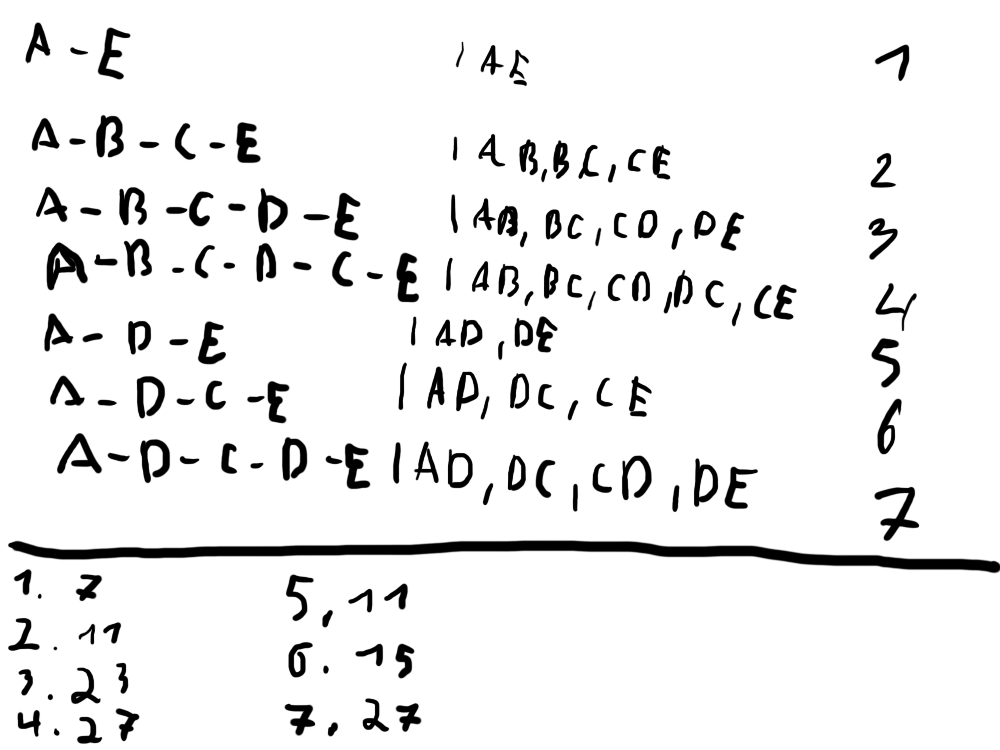 A - E | AE 1
A - B - C - E | AB, BC, CE 2
A - B - C - D - E | AB, BC, CD, DE 3
A - B - C - D - C - E | AB, BC, CD, DC, CE 4
A - D - E | AD, DE 5
A - D - C - E | AD, DC, CE 6
A - D - C - D - E | AD, DC, CD, DE 7
1. 7 5, 11
2. 11 6. 15
3. 23 7, 27
4. 27